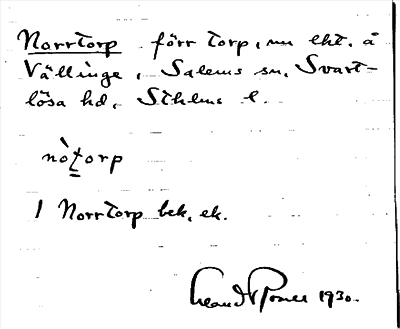 Norrtorp förr torp, nu lht. å
Vällinge, Salems sn, Svart-
lösa hd, Sthlms l.
nò̀torp
1 Norrtorp bek, ek.
1930.